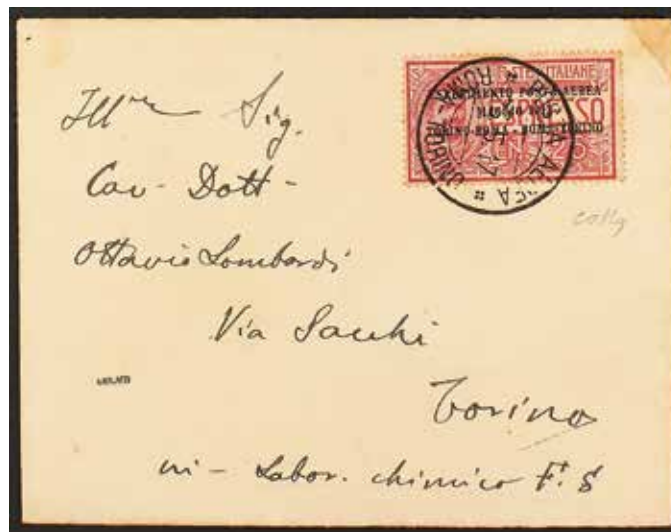 POSTE ITALIANE
ESPERIMENTO POSTA AEREA
MAGGIO 1917
TORINO-ROMA · ROMA-TORINO
ESPRESSO
CENT 25
POSTA AEREA
ROMA-TORINO
Illmo Sig.
Cav- Dott-
Ottavio Lombardi
Via Sacchi
Torino
ni- Labor. chimico F. S